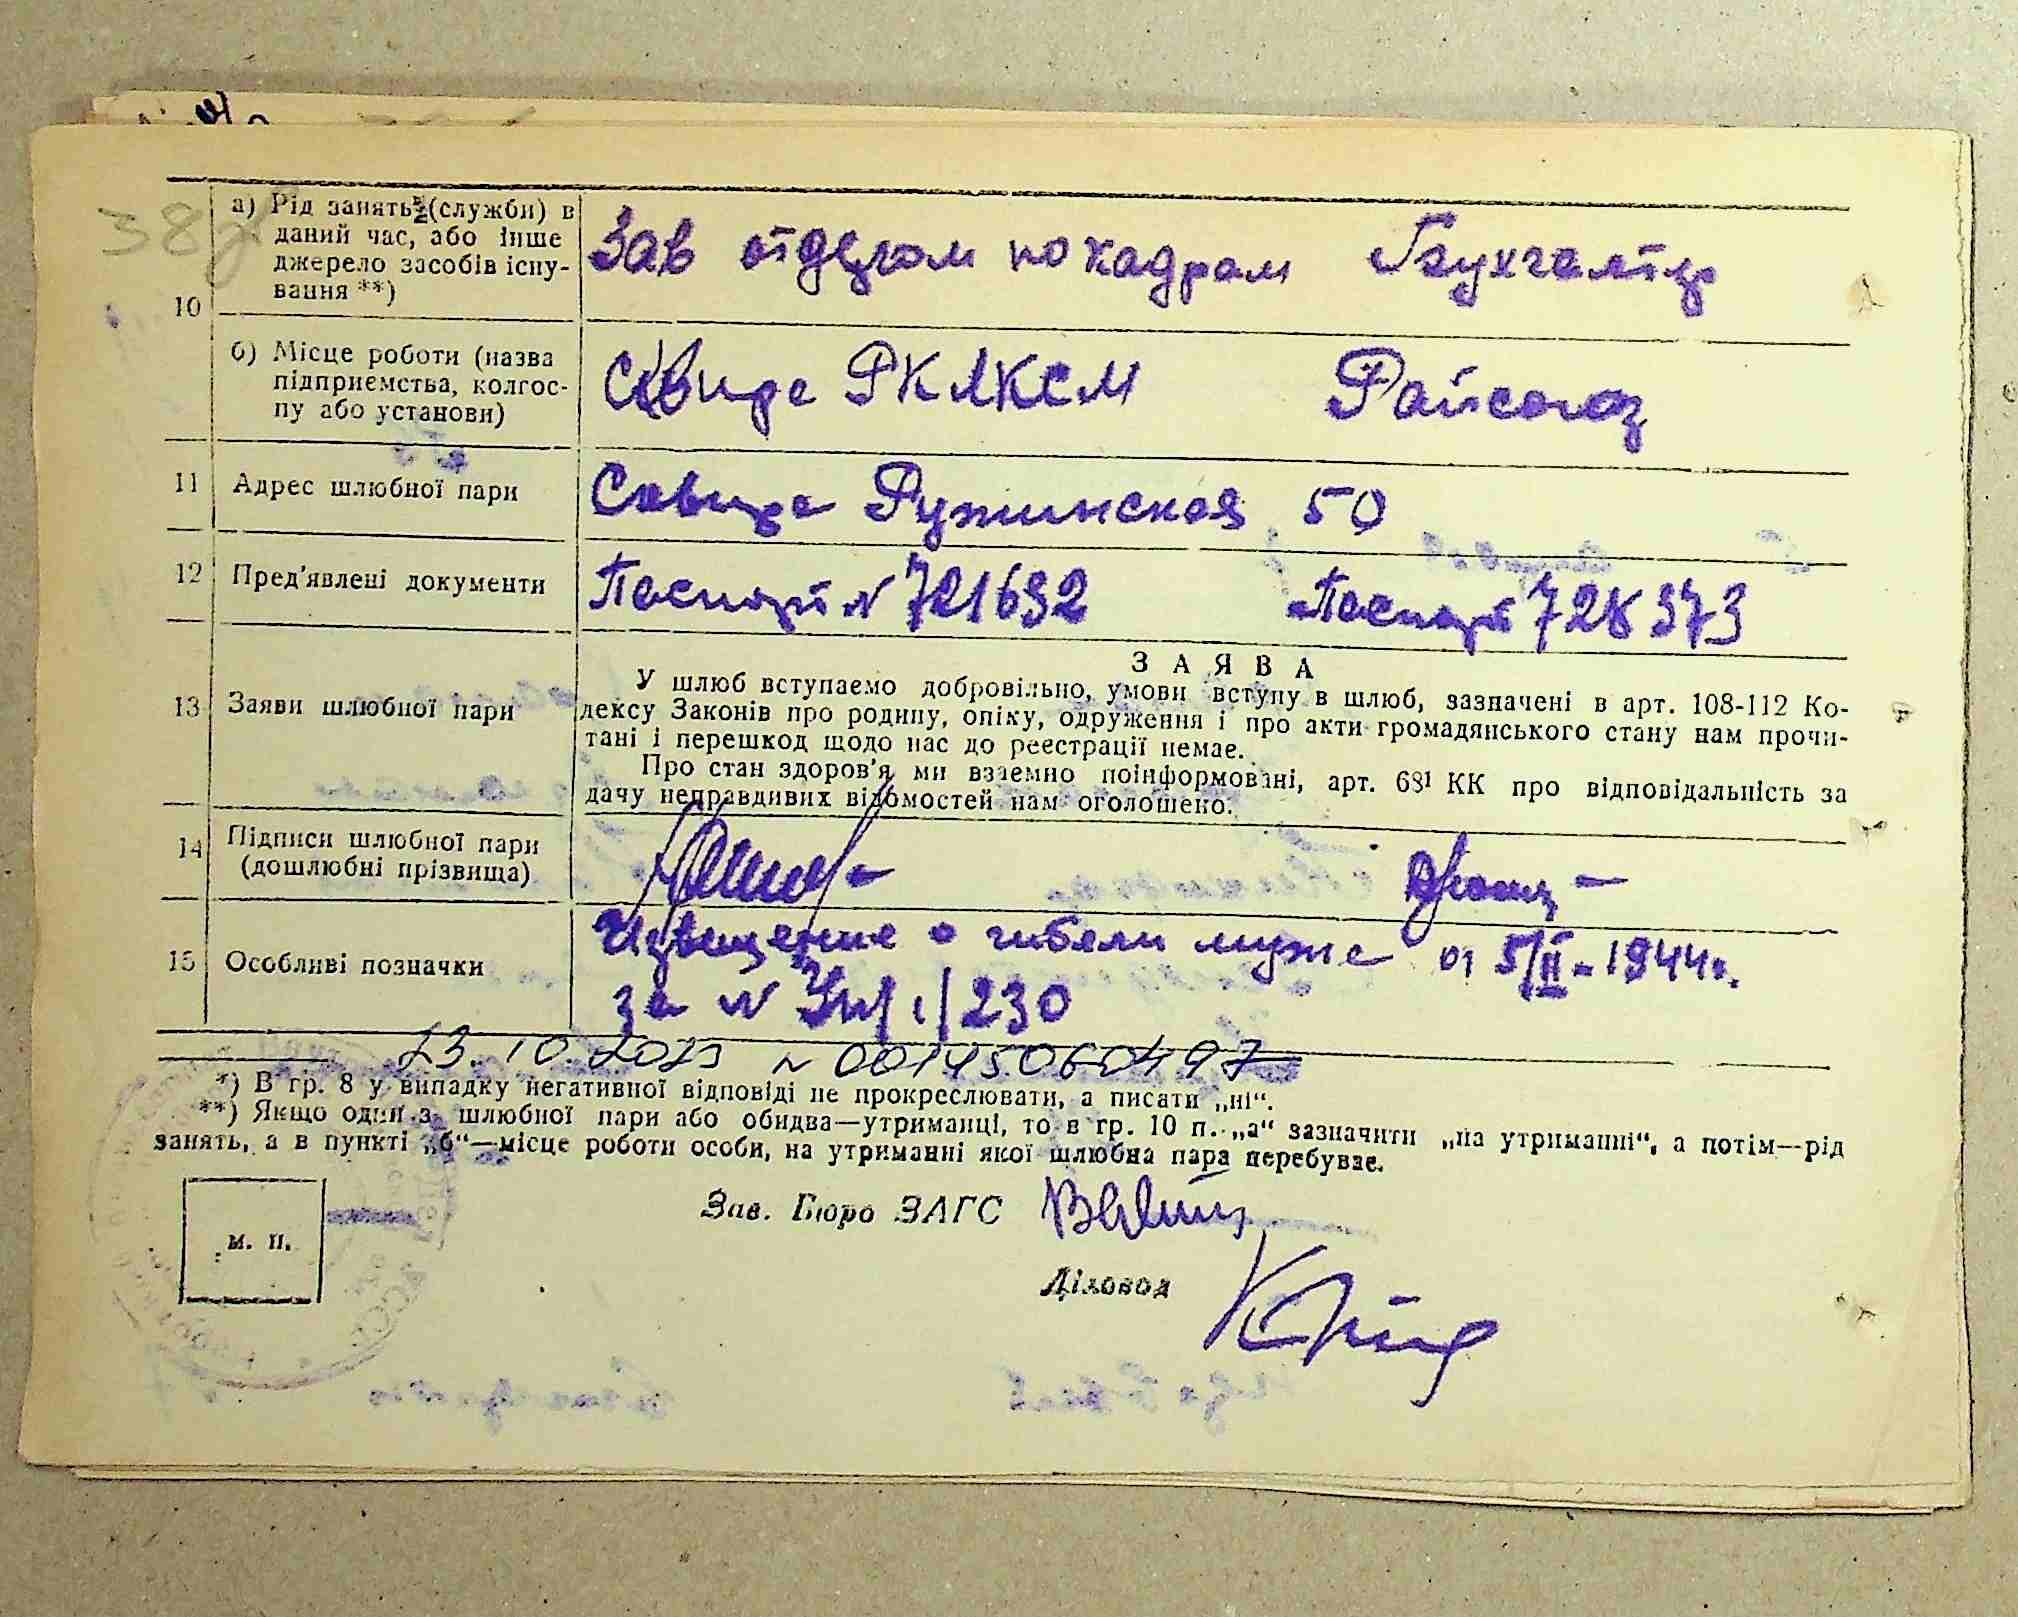 38
10
а) Рід занять (служби) в
даний час, або інше
джерело засобів існу-
вання **)
Зав отделом по кадрам Бухгалтер
б) Місце роботи (назва
підприємства, колгос-
пу або установи)
Сквира РКЛКСМ Райсоюз
11 Адрес шлюбної пари
Сквира Ружинская 50
12 Пред'явлені документи
Паспорт N 721692 Паспорт 728373
13 Заяви шлюбної пари
ЗАЯВА
У шлюб вступаємо добровільно, умови вступу в шлюб, зазначені в арт. 108-112 Ко-
дексу Законів про родину, опіку, одруження і про акти громадянського стану нам прочи-
тані і перешкод щодо нас до реєстрації немає.
Про стан здоров'я ми взаємно поінформовані, арт. 68¹ КК про відповідальність за
дачу неправдивих відомостей нам оголошено.
14 Підписи шлюбної пари
(дошлюбні прізвища)
15 Особливі позначки
Извещение о гибели мужа от 5/II-1944г.
за N 1/230
23.10.2023 N 00145060497
*) В гр. 8 у випадку негативної відповіді не прокреслювати, а писати „ні“.
**) Якщо один з шлюбної пари або обидва—утриманці, то в гр. 10 п. „а“ зазначити „на утриманні“, а потім—рід
занять, а в пункті „б“—місце роботи особи, на утриманні якої шлюбна пара перебуває.
м. п.
Зав. Бюро ЗАГС
Діловод